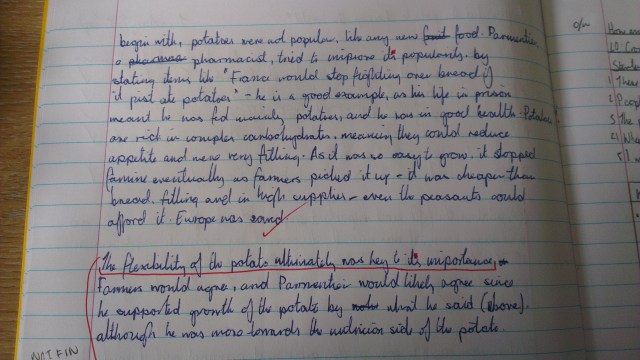 begin with, potatoes were not popular, like any new fruit food. Parmentier,
a pharmacis pharmacist, tried to improve its popularity by
stating items like "France would stop fighting over bread if
it just ate potatoes" - he is a good example, as his life in prison
meant he was fed mainly potatoes, and he was in good health. Potatoes
are rich in complex carbohydrates, meaning they could reduce
appetite and were very filling. As it was so easy to grow, it stopped
famine eventually as farmers picked it up - it was cheaper than
bread, filling and in high supplies - even the peasants could
afford it. Europe was saved
The flexibility of the potato ultimately was key to its importance,
Farmers would agree, and Parmentier would likely agree since
he supported growth of the potato by what he said (above),
although he was more towards the nutrition side of the potato.
NOT FIN